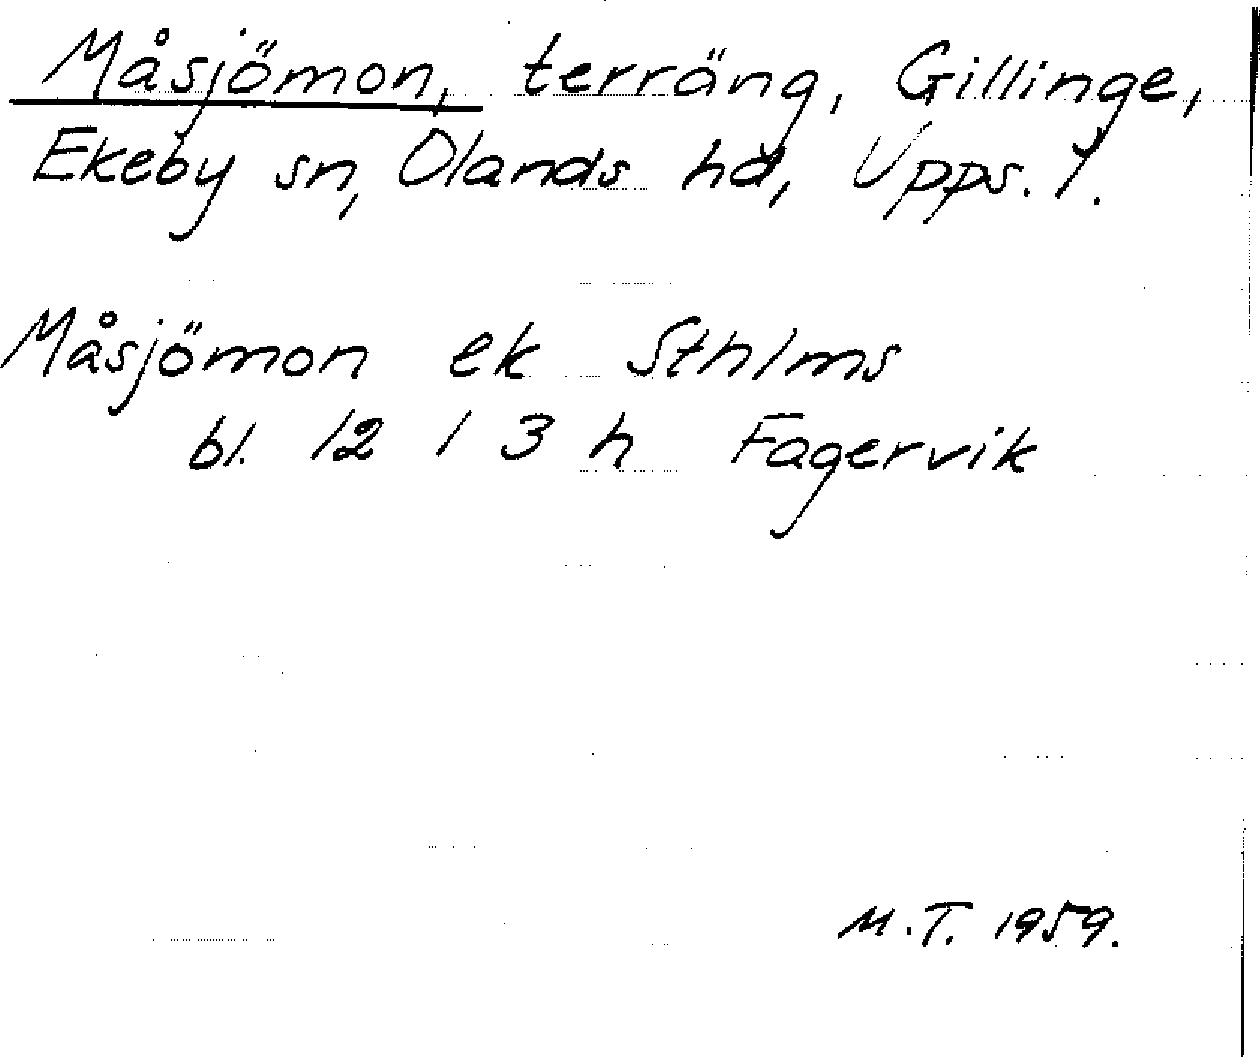 Måsjömon, terräng, Gillinge,
Ekeby sn, Olands hd, Upps. l.
Måsjömon ek Sthlms
bl. 12 1 3 h Fagervik
M.T. 1959.